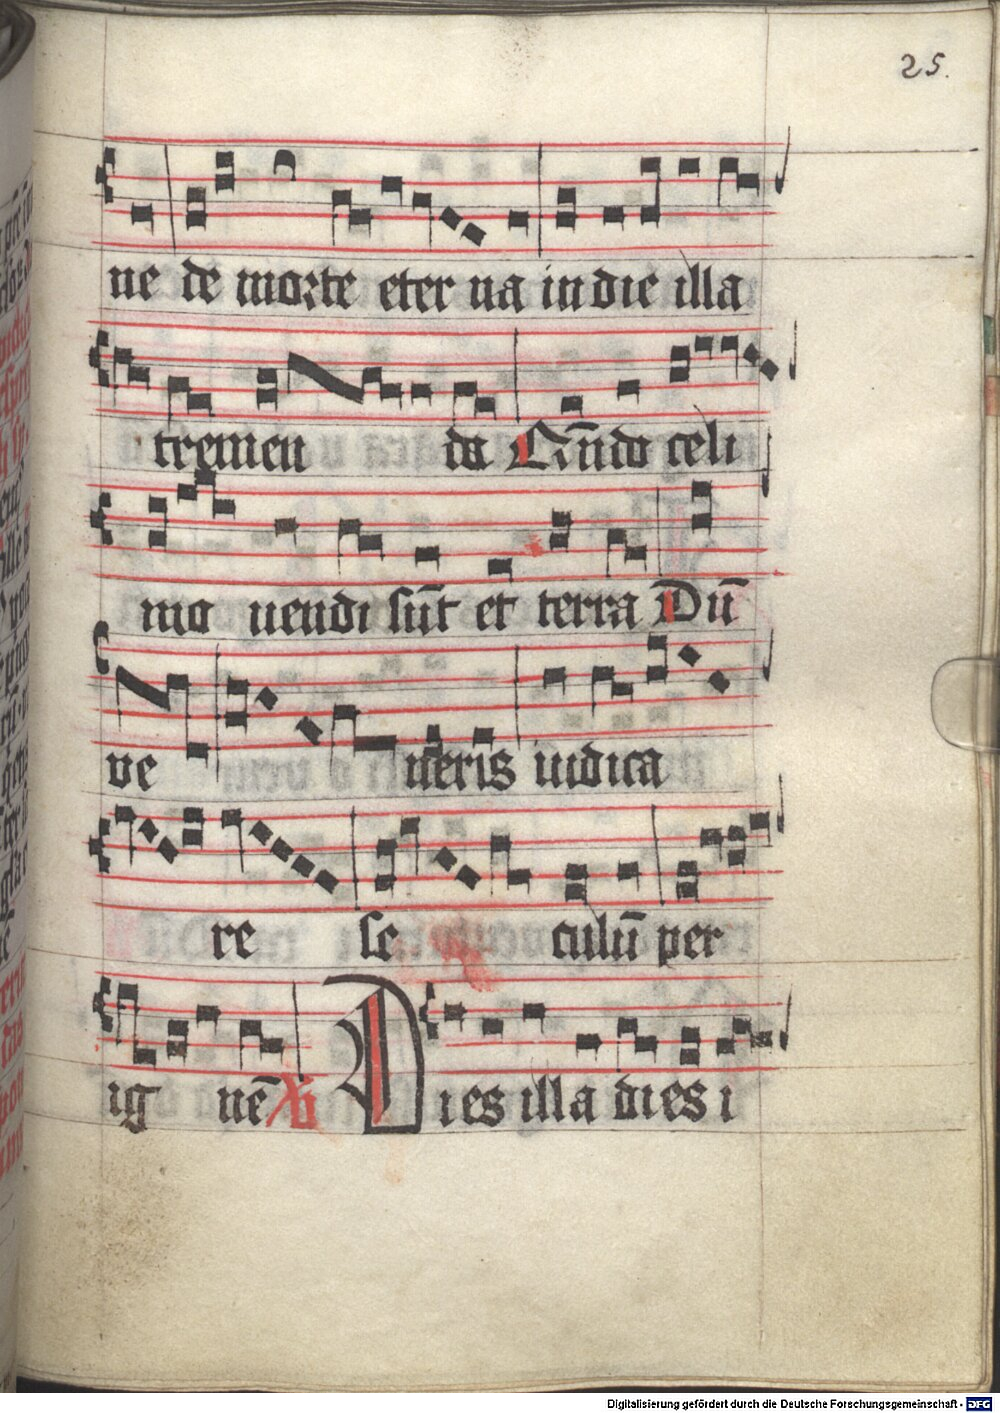 25.
ne de morte eter na in die illa
tremen da Qn̄do celi
mo uendi sūt et terra Dū
ve neris iudica
re se culū per
ig nē Dies illa dies i
Digitalisierung gefördert durch die Deutsche Forschungsgemeinschaft - DFG